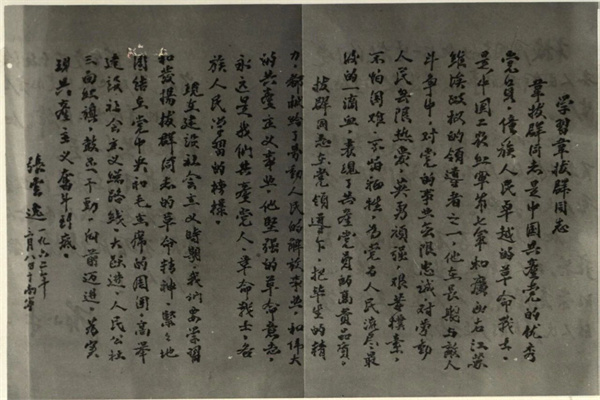 学習韋拔群同志
韋拔群同志是中国共產党的优秀
党員,僮族人民卓越的革命战士,
是中国工农紅軍第七軍和廣西右江苏
維埃政权的領導者之一,他在長期与敌人
斗爭中,对党的事业无限忠诚对劳动
人民无限热爱,英勇頑强,艰苦樸素,
不怕困难,不怕牺牲,为党为人民流尽最
後的一滴血,表現了共產党員的高貴品質。
拔群同志在党領導下,把毕生的精
力,都献給了劳动人民的解放事业,和伟大
的共產主义事业,他堅强的革命意志,
永远是我們共產党人,革命战士,各
族人民学習的榜樣。
現在建設社会主义時期,我们要学習
和发揚拔群同志的革命精神,緊緊地
团結在党中央和毛主席的周围,高举
建設社会主义總路线、大跃进、人民公社
三面紅旗,鼓足干劲,向前迈进,为实
現共產主义奋斗到底。
張雲逸 一九六二年
二月八日于南寧